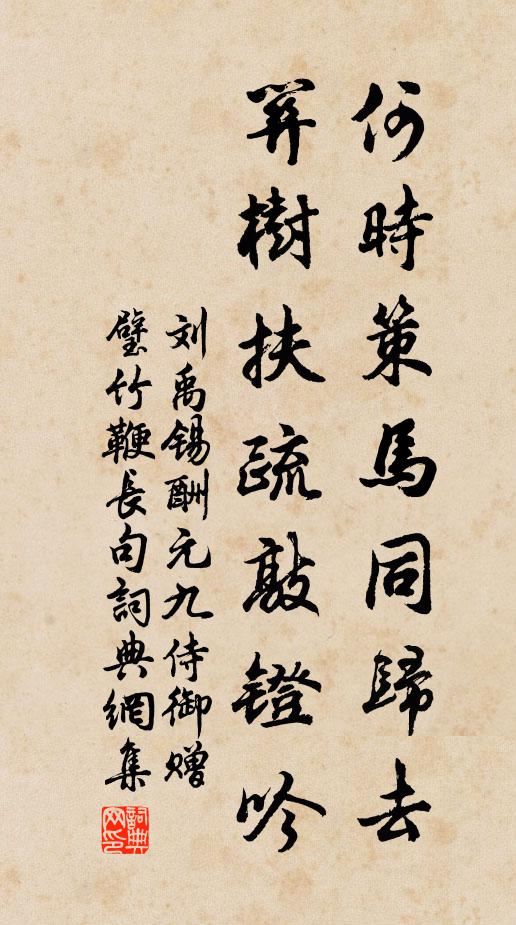 何時策馬同歸去
關樹扶疏敲鐙吟
刘禹錫酬元九侍御贈
璧竹鞭長句詞典網集
詞典
网印